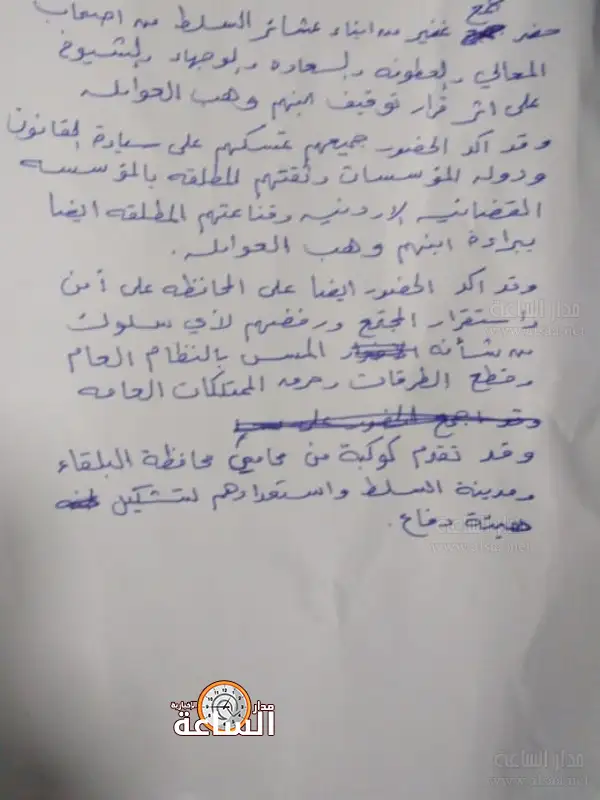 حضر جمع غفير من ابناء عشائر السلط من اصحاب
المعالي والعطوفه والسعاده والوجهاء والشيوخ
على اثر قرار توقيف ابنهم وهب العوامله
وقد اكد الحضور جميعهم تمسكهم على سيادة القانون
ودوله المؤسسات وثقتهم المطلقه بالمؤسسه
القضائيه الاردنيه وقناعتهم المطلقه ايضا
ببراءة ابنهم وهب العوامله.
وقد اكد الحضور ايضا على المحافظه على أمن
واستقرار المجتمع ورفضهم لأي سلوك
من شأنه المس بالنظام العام
وقطع الطرقات وحرق الممتلكات العامه
وقد اجمع الحضور على
وقد تقدم كوكبة من محاميي محافظة البلقاء
ومدينة السلط واستعدادهم لتشكيل
هيئة دفاع.
مدار الساعة
مدار الساعة الاخبارية
مدار الساعة